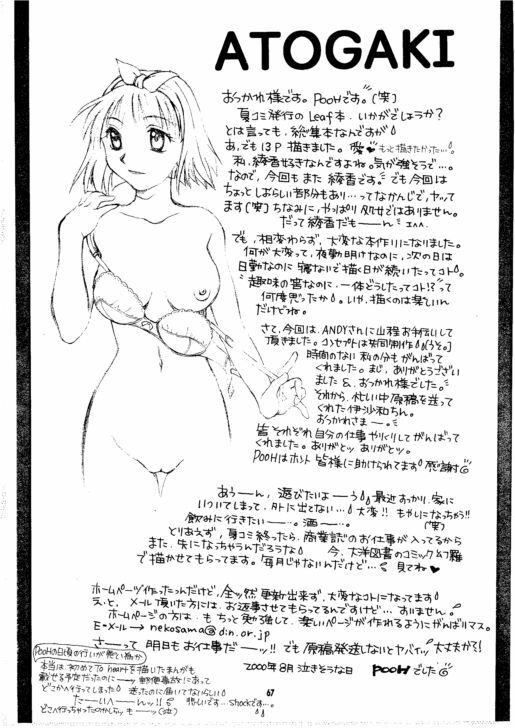 ATOGAKI
おつかれ様です。POOHです。(笑)
夏コミ発行のLeaf本、いかがでしょうか？
とは言っても、総集本なんですが
あ、でも13P描きました。 もっと描きたかった…。
私、綾香せろきなんですよね。気が強そうで…。
なので、今回もまた綾香です。でも今回は
ちょっとしおらしい部分もあり…ってなかんじで、ヤッて
ます(笑)ちなみに、やっぱり処女ではありません。
だって綾香だもーーん
でも、相変わらず、大変な本作りになりました。
何が大変って、夜勤明けなのに、次の日は
日勤なのに寝ないで描く日が続いたってコト。
趣味の筈なのに、一体どうしたってコト!?って
何度思ったか。いや、描くのは楽しいん
だけどね。
さて、今回は、ANDYさんに山程お手伝いして
頂きました。コンセプトは共同制作(うそ)。
時間のない私の分もがんばって
くれました。まじ、ありがとうござい
ました&、おつかれ様でした。
それから、忙しい中原稿を送って
くれた伊沙和ちん。
おつかれさまー。
皆それぞれ自分の仕事やりくりしてがんばって
くれました。ありがとッ ありがとッ。
POOHはホント皆様に助けられてます 感謝
あうーん、遊びたいよーーう 最近すっかり、家に
ついてしまって、外に出てない…。大変!! もやしになっちゃう!!
飲みに行きたいーー…。酒ーー…。(笑)
とりあえず、夏コミ終ったら、商業誌のお仕事が入ってるから
また、失になっちゃうんだろうな 今、大洋図書のコミックク羅
で描かせてもらってます。毎月じゃないんだけど…。見てね♥
ホームページ作ったんだけど、全ッ然更新出来ず、大変なコトになってます
えーと、メール頂いた方には、お返事させてもらってるんですけど… すいません。
ホームページの方は、もちっと勉強して、楽しいページが作れるようにがんばりマス。
E-メール→nekosama@din.or.jp
さーーって 明日もお仕事だーッ!! でも原稿発送しないとヤバイッ 大丈夫か!
2000年8月 泣きそうな日 POOHでした
POOHの日頃の行いが悪い為か
本当は初めてTo heartを描いたまんがも
載せる予定だったのにーーッ 郵便事故にあって
どこかへ行ってしまった 送ったのに届いてないらしい
たーいへーーんッ!! 悲しいです…shockです…。
どこ行っちゃったのかしらッ もーーッ(泣)
67